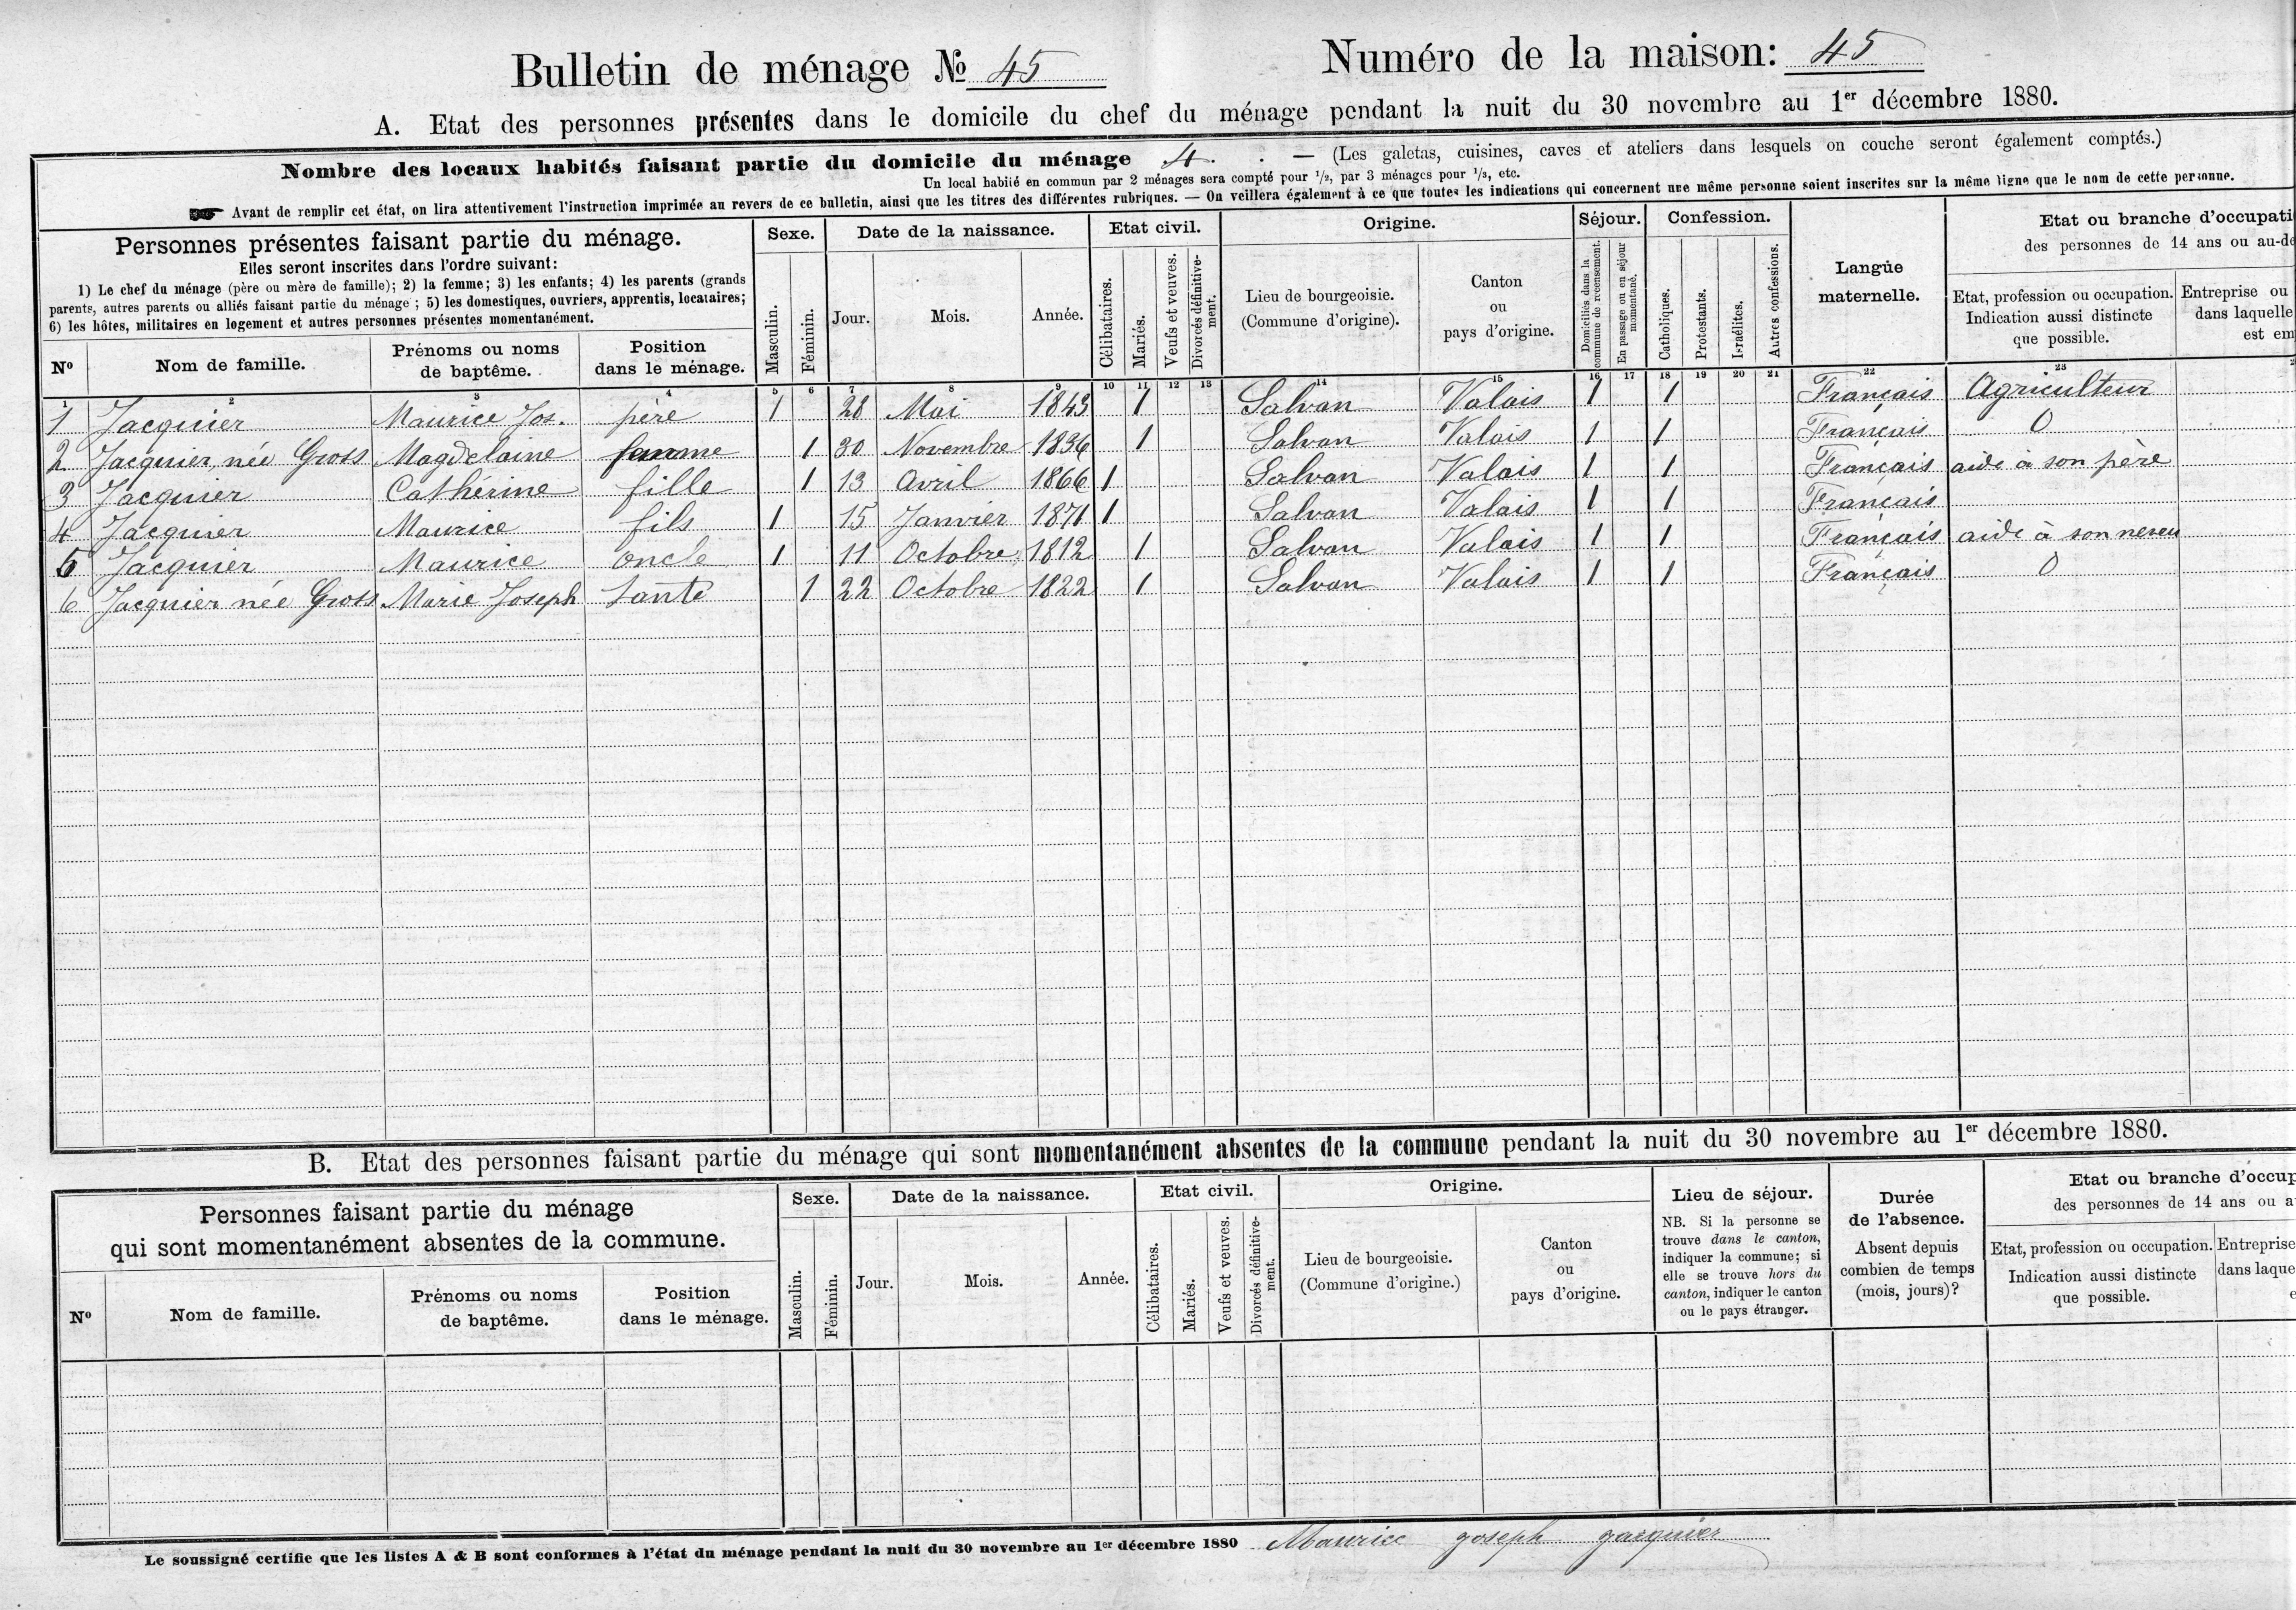 Bulletin de ménage No 45 Numéro de la maison: 45
A. Etat des personnes présentes dans le domicile du chef du ménage pendant la nuit du 30 novembre au 1er décembre 1880.
Nombre des locaux habités faisant partie du domicile du ménage 4. — (Les galetas, cuisines, caves et ateliers dans lesquels on couche seront également comptés.)
Un local habité en commun par 2 ménages sera compté pour 1/2, par 3 ménages pour 1/3, etc.
Avant de remplir cet état, on lira attentivement l'instruction imprimée au revers de ce bulletin, ainsi que les titres des différentes rubriques. — On veillera également à ce que toutes les indications qui concernent une même personne soient inscrites sur la même ligne que le nom de cette personne.
Personnes présentes faisant partie du ménage.
Elles seront inscrites dans l'ordre suivant:
1) Le chef du ménage (père ou mère de famille); 2) la femme; 3) les enfants; 4) les parents (grands
parents, autres parents ou alliés faisant partie du ménage; 5) les domestiques, ouvriers, apprentis, locataires;
6) les hôtes, militaires en logement et autres personnes présentes momentanément.
No
Nom de famille.
Prénoms ou noms
de baptême.
Position
dans le ménage.
Sexe.
Masculin.
Féminin.
Date de la naissance.
Jour.
Mois.
Année.
Etat civil.
Célibataires.
Mariés.
Veufs et veuves.
Divorcés définitive-
ment.
Origine.
Lieu de bourgeoisie.
(Commune d'origine).
Canton
ou
pays d'origine.
Séjour.
Domiciliés dans la
commune de recensement.
En passage ou en séjour
momentané.
Confession.
Catholiques.
Protestants.
Israélites.
Autres confessions.
Langue
maternelle.
Etat ou branche d'occupati
des personnes de 14 ans ou au-de
Etat, profession ou occupation.
Indication aussi distincte
que possible.
Entreprise ou
dans laquelle
est em
1 2 3 4 5 6 7 8 9 10 11 12 13 14 15 16 17 18 19 20 21 22 23
1 Jacquier Maurice Jos. père 1 28 Mai 1843 1 Salvan Valais 1 1 Français Agriculteur
2 Jacquier née Gross Magdelaine femme 1 30 Novembre 1836 1 Salvan Valais 1 1 Français 0
3 Jacquier Cathérine fille 1 13 Avril 1866 1 Salvan Valais 1 1 Français aide à son père
4 Jacquier Maurice fils 1 15 Janvier 1871 1 Salvan Valais 1 1 Français
5 Jacquier Maurice oncle 1 11 Octobre 1812 1 Salvan Valais 1 1 Français aide à son neveu
6 Jacquier née Gross Marie Joseph tante 1 22 Octobre 1822 1 Salvan Valais 1 1 Français 0
B. Etat des personnes faisant partie du ménage qui sont momentanément absentes de la commune pendant la nuit du 30 novembre au 1er décembre 1880.
Personnes faisant partie du ménage
qui sont momentanément absentes de la commune.
No
Nom de famille.
Prénoms ou noms
de baptême.
Position
dans le ménage.
Sexe.
Masculin.
Féminin.
Date de la naissance.
Jour.
Mois.
Année.
Etat civil.
Célibataires.
Mariés.
Veufs et veuves.
Divorcés définitive-
ment.
Origine.
Lieu de bourgeoisie.
(Commune d'origine.)
Canton
ou
pays d'origine.
Lieu de séjour.
NB. Si la personne se
trouve dans le canton,
indiquer la commune; si
elle se trouve hors du
canton, indiquer le canton
ou le pays étranger.
Durée
de l'absence.
Absent depuis
combien de temps
(mois, jours)?
Etat ou branche d'occup
des personnes de 14 ans ou a
Etat, profession ou occupation.
Indication aussi distincte
que possible.
Entreprise
dans laque
e
Le soussigné certifie que les listes A & B sont conformes à l'état du ménage pendant la nuit du 30 novembre au 1er décembre 1880 Maurice joseph jacquier